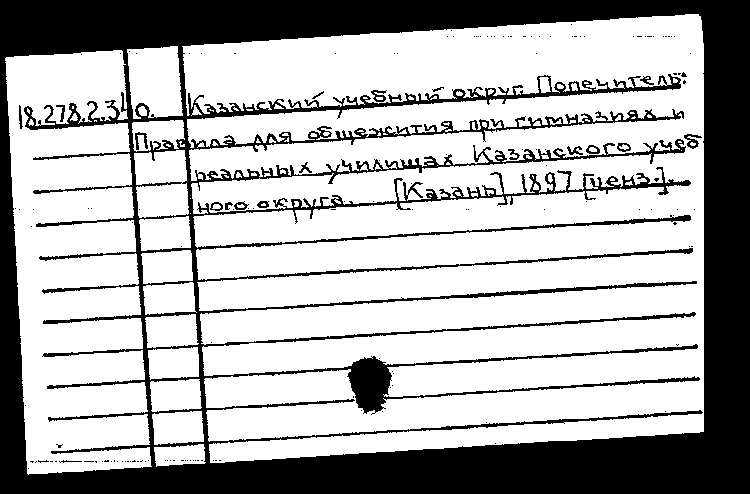 18.278.2.340. Казанский учебный округ. Попечитель.
Правила для общежития при гимназиях и
реальных училищах Казанского учеб-
ного округа. [Казань], 1897 [ценз.].